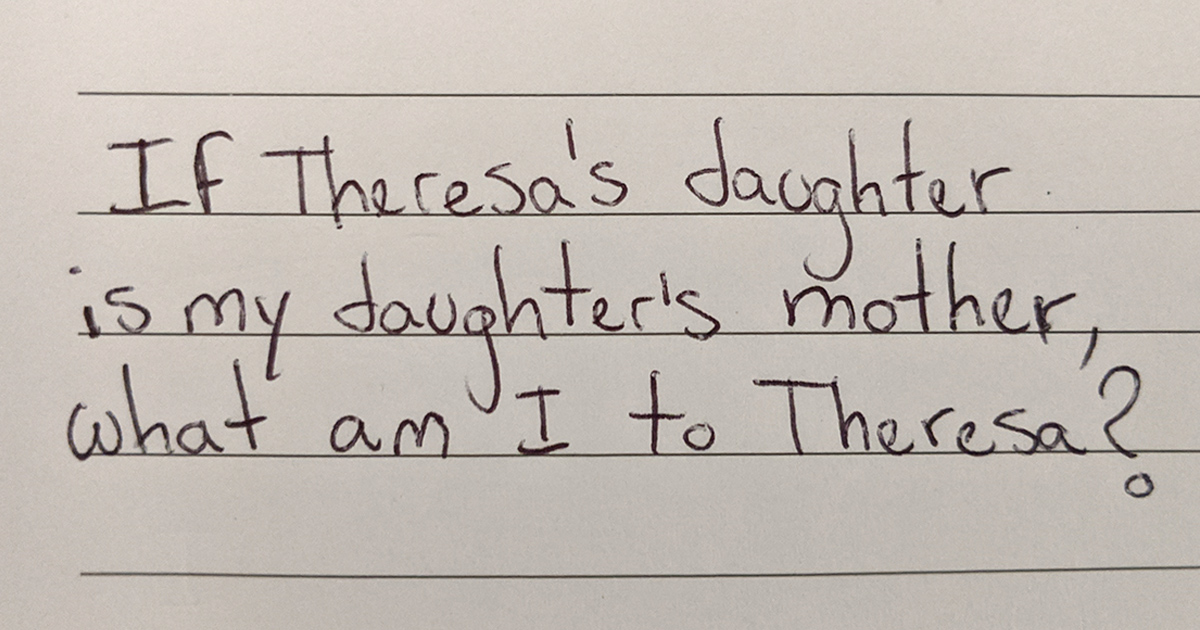 If Theresa's daughter
is my daughter's mother,
what am I to Theresa?